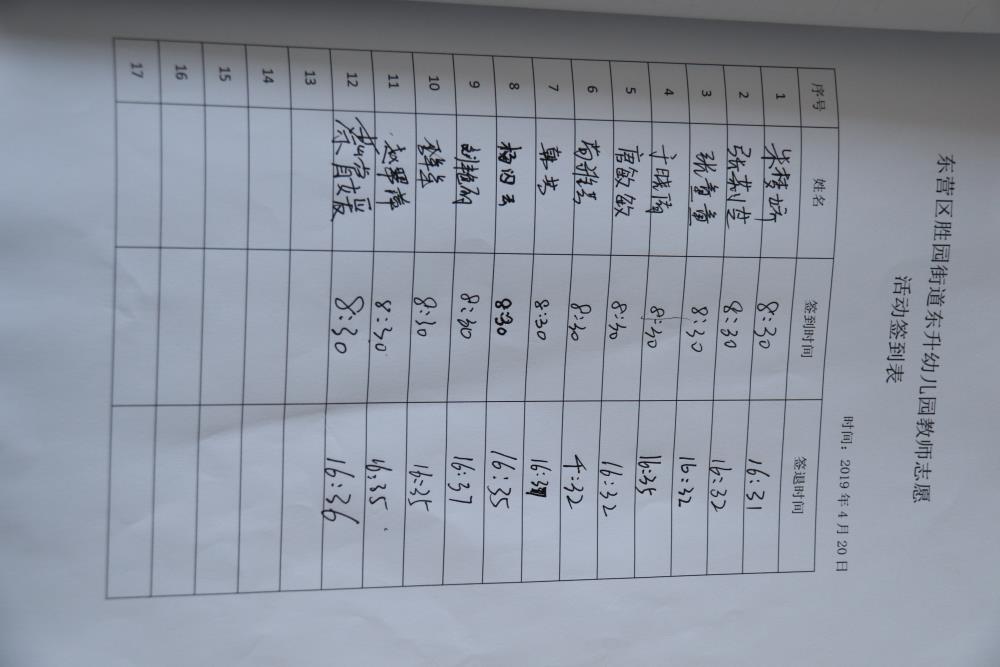 东营区胜园街道东升幼儿园教师志愿
活动签到表
时间：2019 年 4 月 20 日
序号 姓名 签到时间 签退时间
1 8:30 16:31
2 张莉芸 8:30 16:32
3 张青童 8:30 16:32
4 于晓倩 8:30 16:35
5 唐敏敏 8:30 16:32
6 8:30 4:32
7 8:30
8 杨阳玉 8:30 16:35
9 刘艳丽 8:30 16:37
10 8:30 16:35
11 赵翠萍 8:30 16:35
12 8:30 16:36
13
14
15
16
17